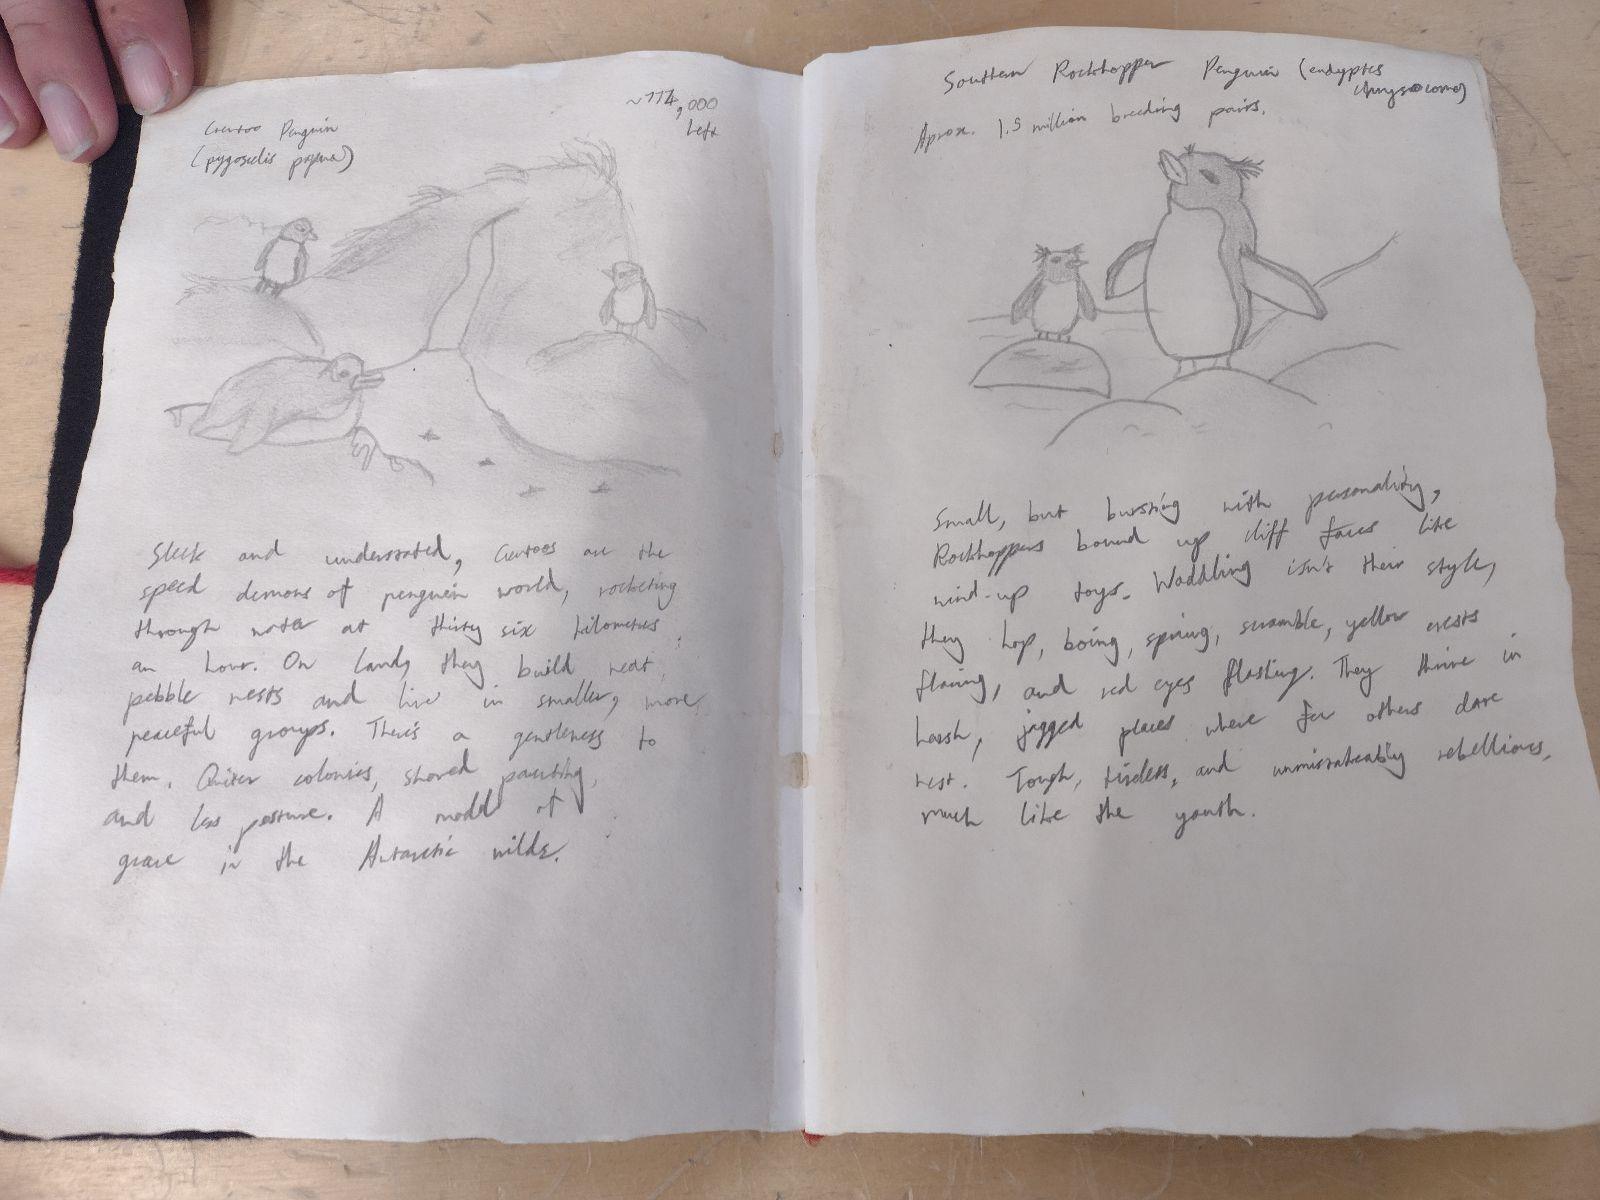 Gentoo Penguin
(pygoscelis papua)
~774,000
Left
Sleek and understated, Gentoos are the
speed demons of penguin world, rocketing
through water at thirty six kilometres
an hour. On land, they build neat
pebble nests and live in smaller, more
peaceful groups. There's a gentleness to
them. Quieter colonies, shared parenting,
and less posture. A model of
grace in the Antarctic wilds.
Southern Rockhopper Penguin (eudyptes
chrysocome)
Aprox. 1.5 million breeding pairs.
Small, but bursting with personality,
Rockhoppers bound up cliff faces like
wind-up toys. Waddling isn't their style,
they hop, boing, spring, scramble, yellow crests
flaring, and red eyes flashing. They thrive in
harsh, jagged places where few others dare
rest. Tough, tireless, and unmistakeably rebellious,
much like the youth.